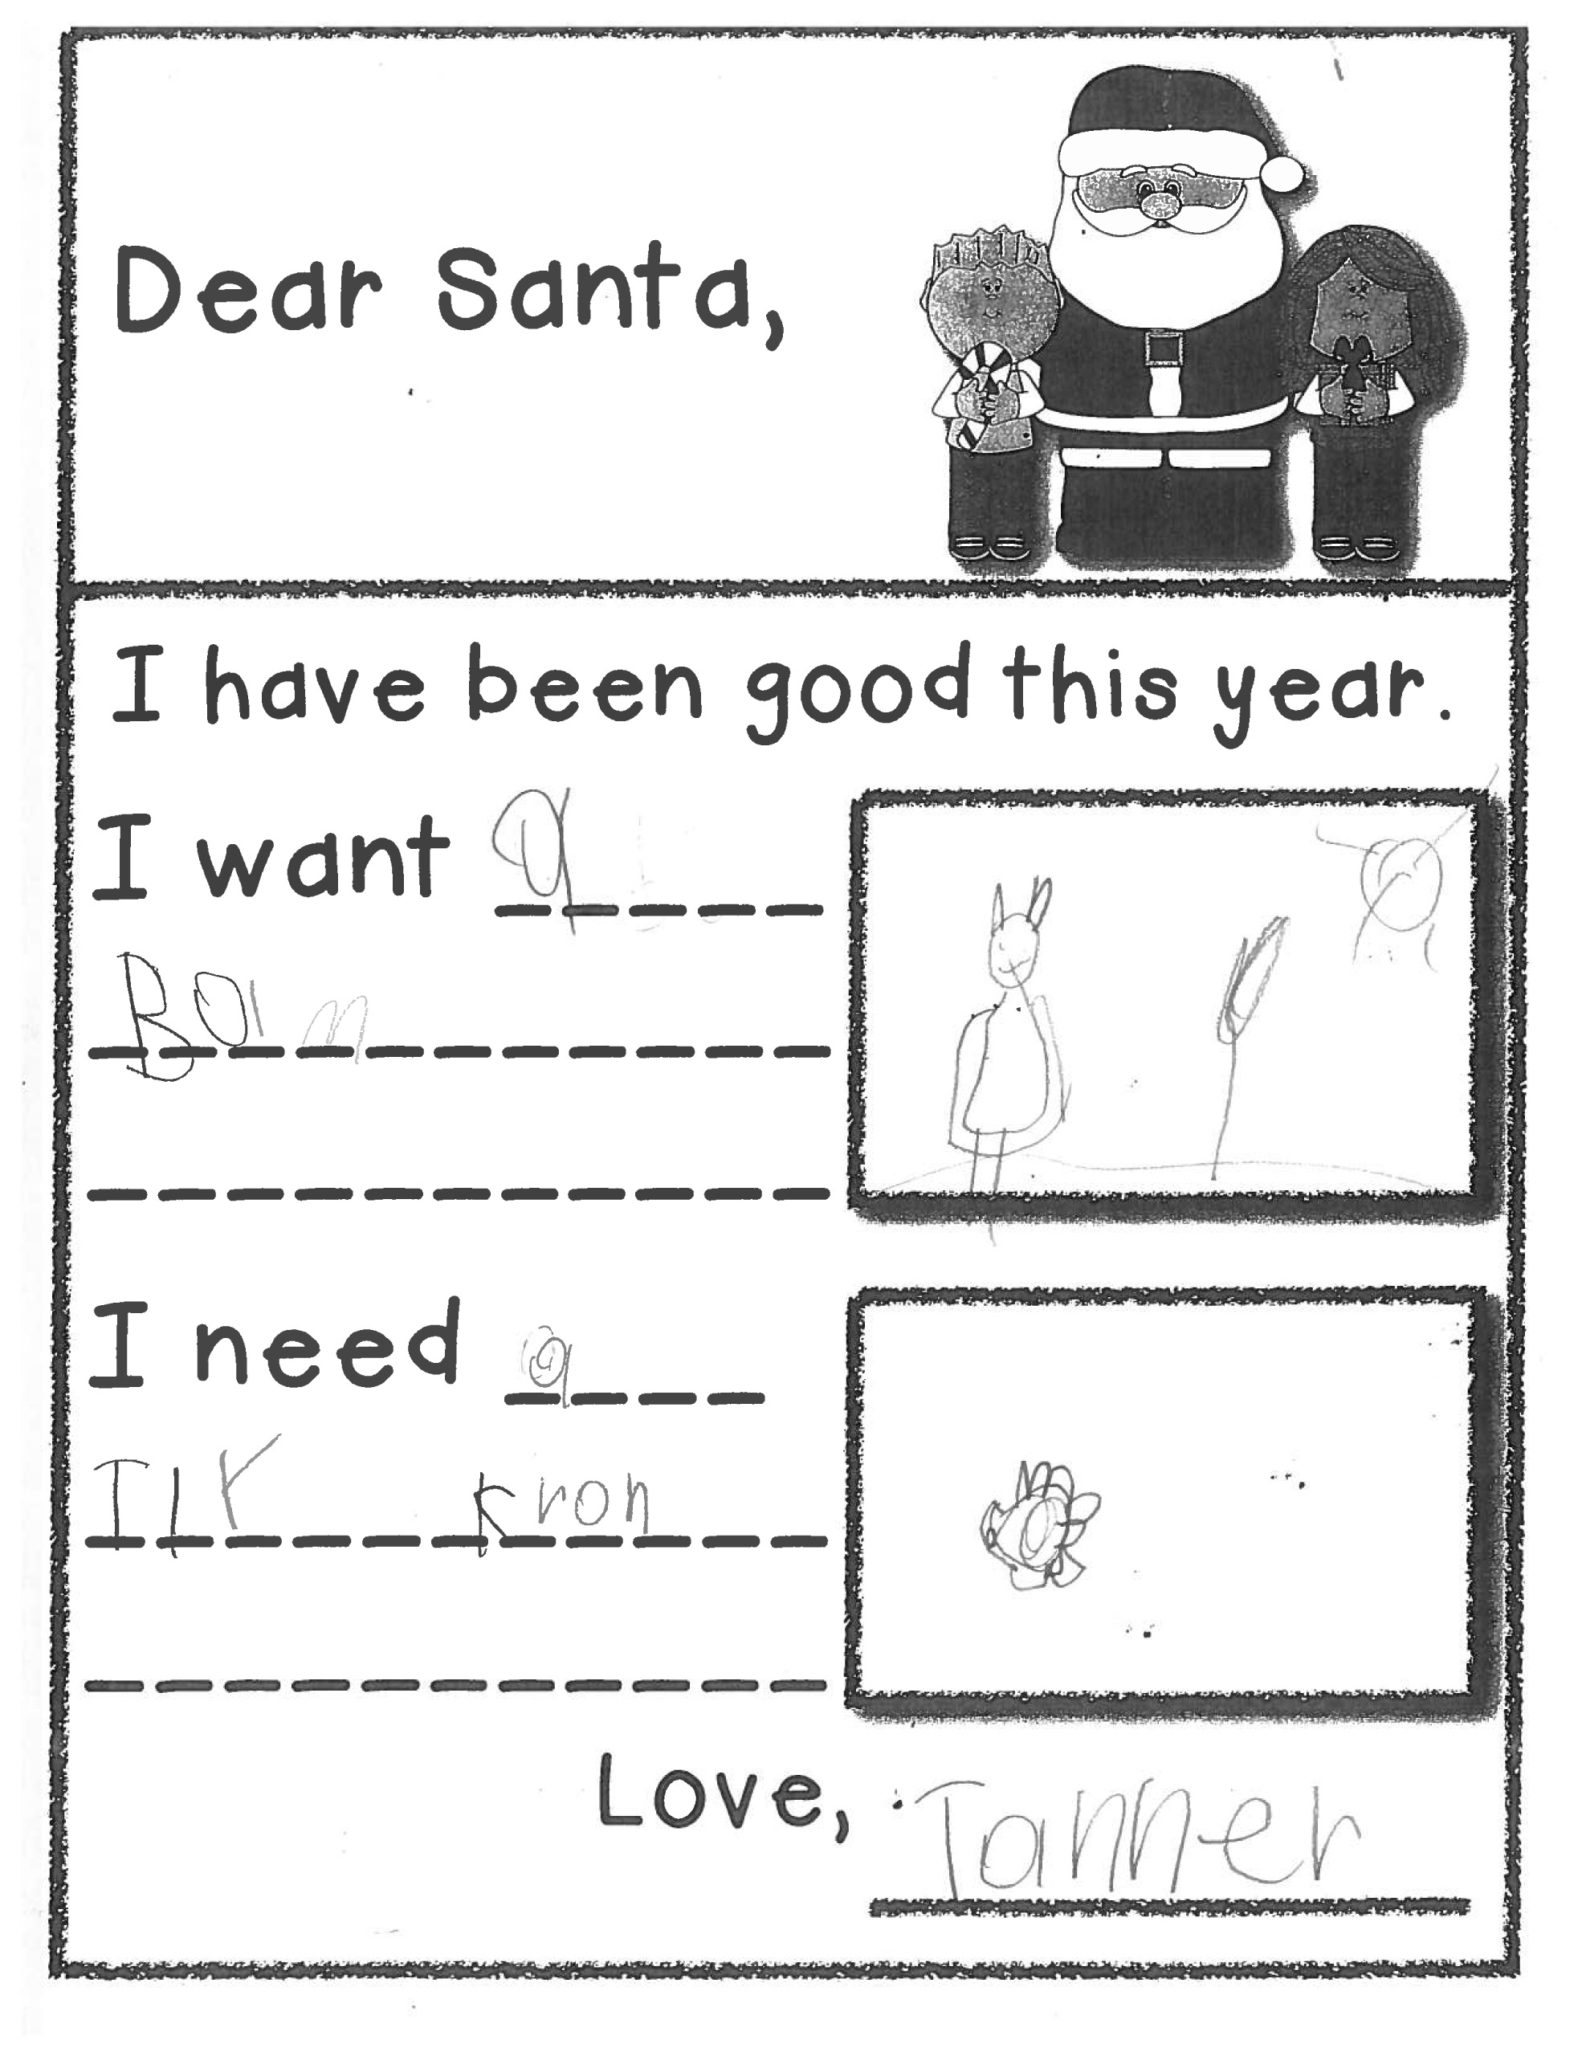 Dear Santa,
I have been good this year.
I want a
Boim
I need a
IlY kron
Love, Tanner